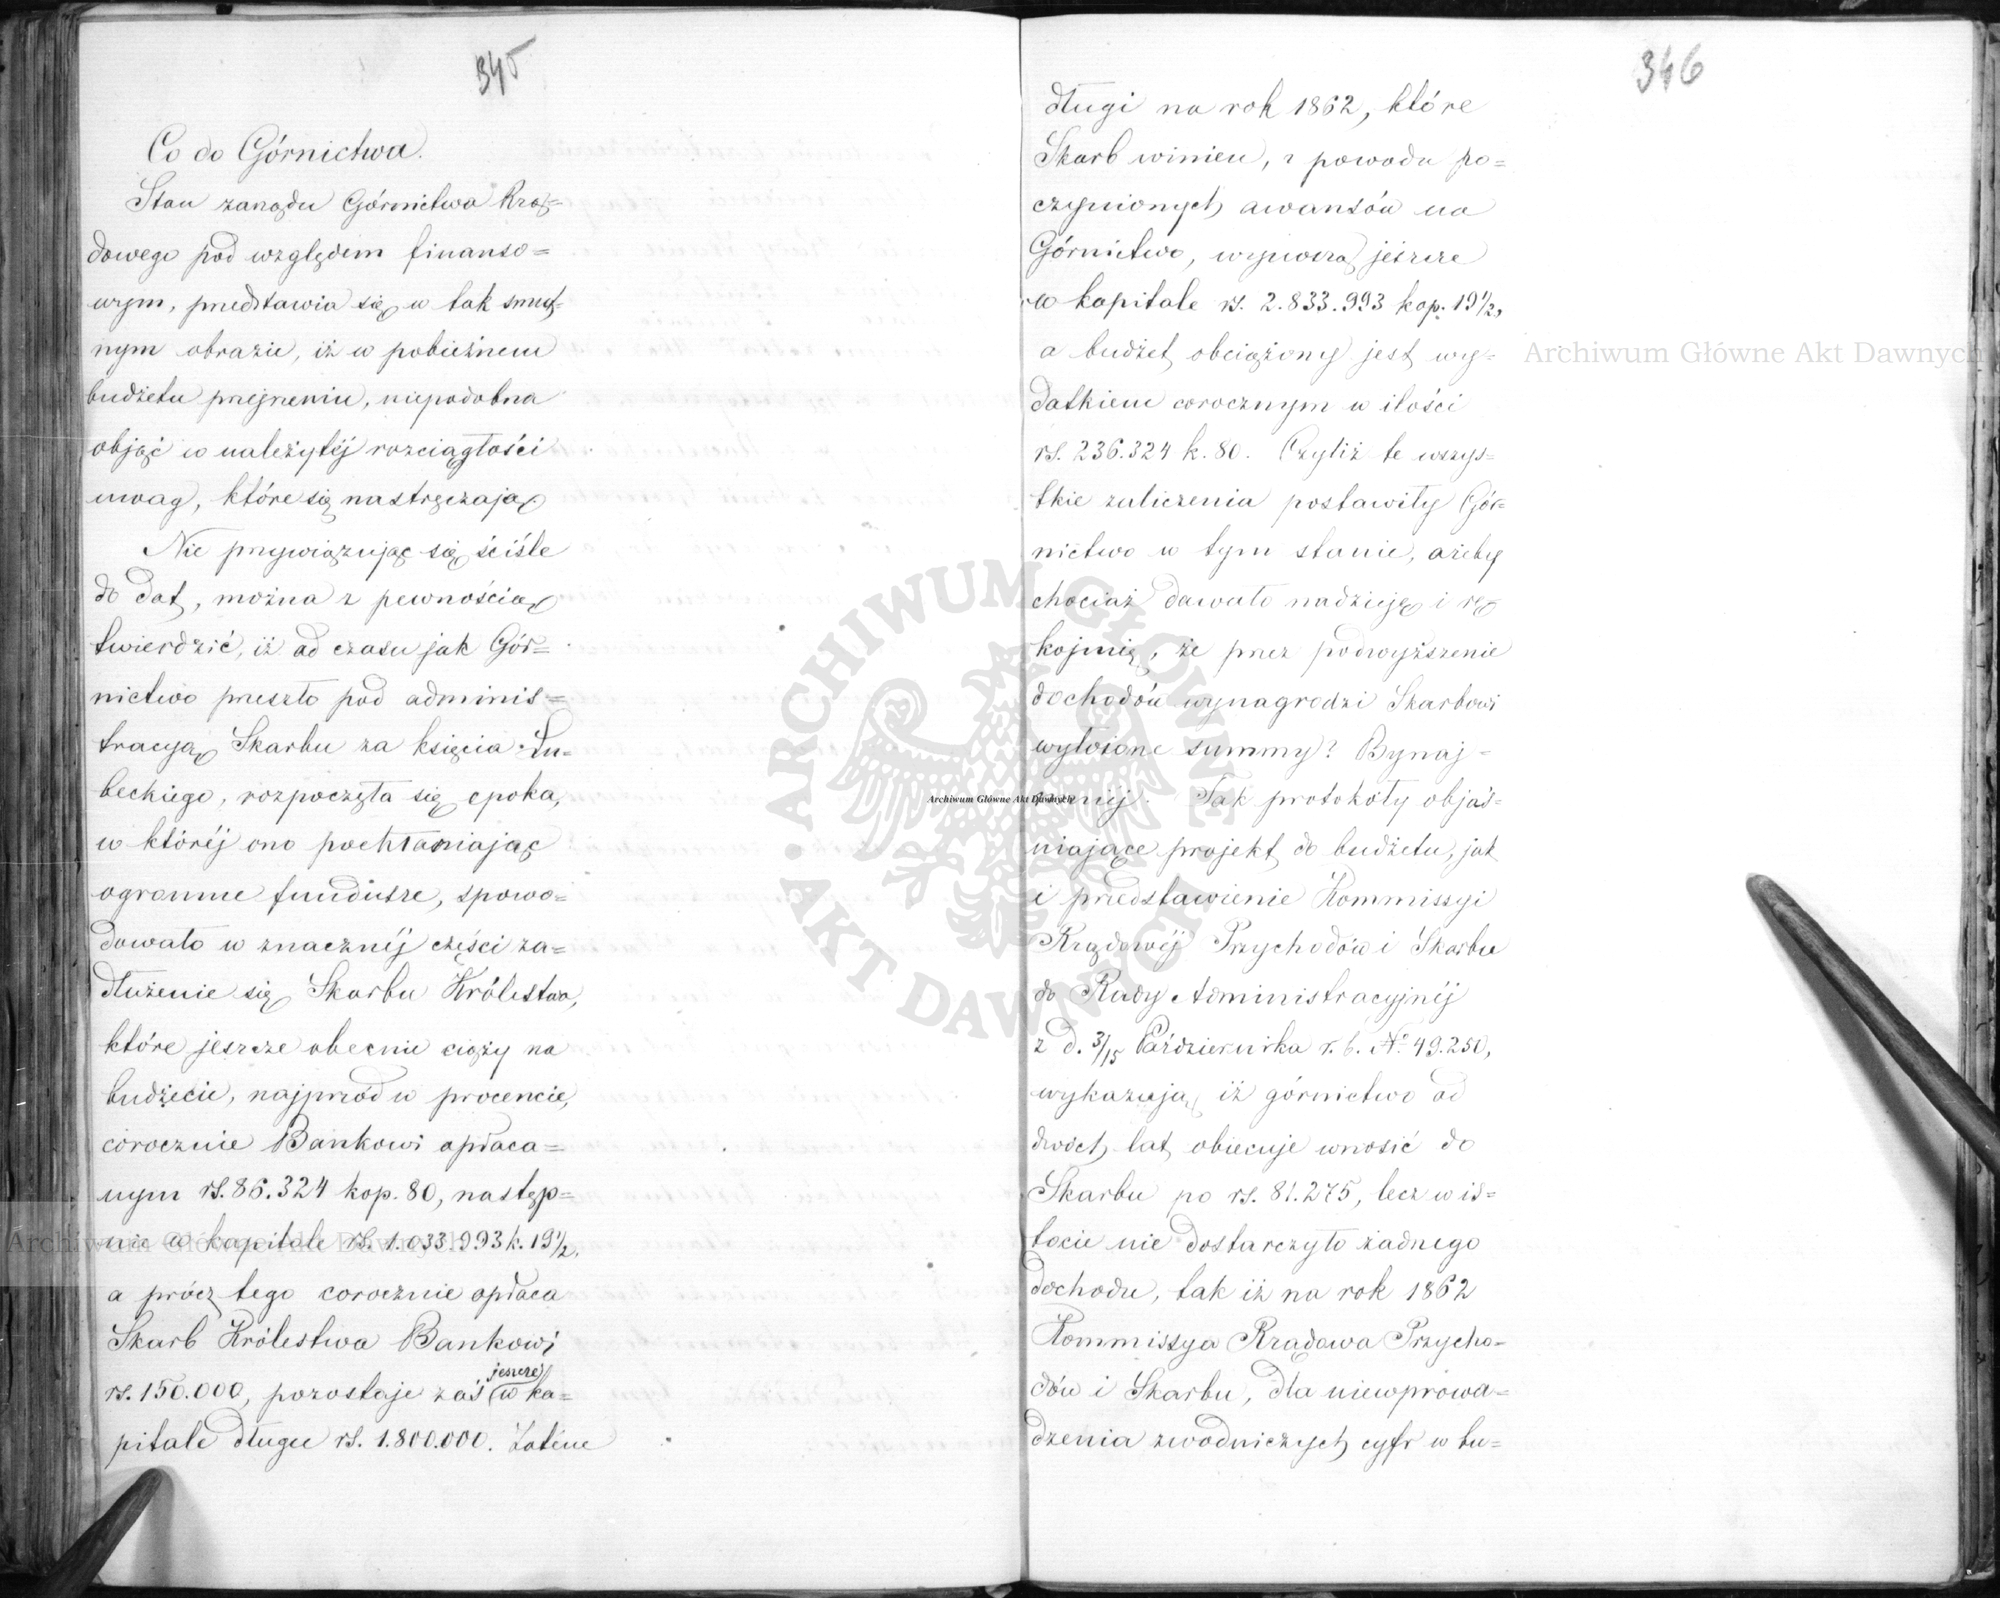 345
Co do Górnictwa.
Stan zarządu Górnictwa Rzą=
dowego pod względem finanso=
wym, przedstawia się w tak smut=
nym obrazie, iż w pobieżnem
budżetu przejrzeniu, niepodobna
objąć w należytéj rozciągłości
uwag, które się nastręczają.
Nie przywiązując się ściśle
do dat, można z pewnością
twierdzić, iż od czasu jak Gór=
nictwo przeszło pod adminis=
tracyą Skarbu za księcia Lu=
beckiego, rozpoczęła się epoka,
w któréj ono pochłaniając
ogromne fundusze, spowo=
dowało w znacznéj części za=
dłużenie się Skarbu Królestwa,
które jeszcze obecnie ciąży na
budżecie, najprzód w procencie,
corocznie Bankowi opłaca=
nym rs. 86.324 kop. 80, następ=
nie w kapitale rs. 1.033.993 k. 19½,
a prócz tego corocznie opłaca
Skarb Królestwa Bankowi
rs. 150.000, pozostaje zaś jeszcze w ka=
pitale długu rs. 1.800.000. Zatém
346
długi na rok 1862, które
Skarb winien, z powodu po=
czynionych awansów na
Górnictwo, wynoszą jeszcze
w kapitale rs. 2.833.993 kop. 19½,
a budżet obciążony jest wy=
datkiem corocznym w ilości
rs. 236.324 k. 80. Czyliż te wszys=
tkie zaliczenia postawiły Gór=
nictwo w tym stanie, ażeby
chociaż dawało nadzieję i rę
kojmię, że przez podwyższenie
dochodów wynagrodzi Skarbowi
wyłożone summy? Bynaj=
mniéj. Tak protokóły objaś=
niające projekt do budżetu, jak
i przedstawienie Kommissyi
Rządowéj Przychodów i Skarbu
do Rady Administracyjnéj
z d. 3/15 Października r. b. No 49.250,
wykazują iż górnictwo od
dwóch lat obiecuje wnosić do
Skarbu po rs. 81.275, lecz w is=
tocie nie dostarczyło żadnego
dochodu, tak iż na rok 1862
Kommissya Rządowa Przycho=
dów i Skarbu, dla niewprowa=
dzenia zwodniczych cyfr w bu=
Archiwum Główne Akt Dawnych
Archiwum Główne Akt Dawnych
Archiwum Główne Akt Dawnych
ARCHIWUM GŁÓWNE AKT DAWNYCH